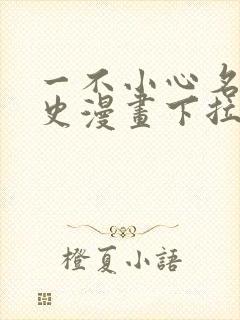 一不小心名
史漫畫下拉
橙夏小語